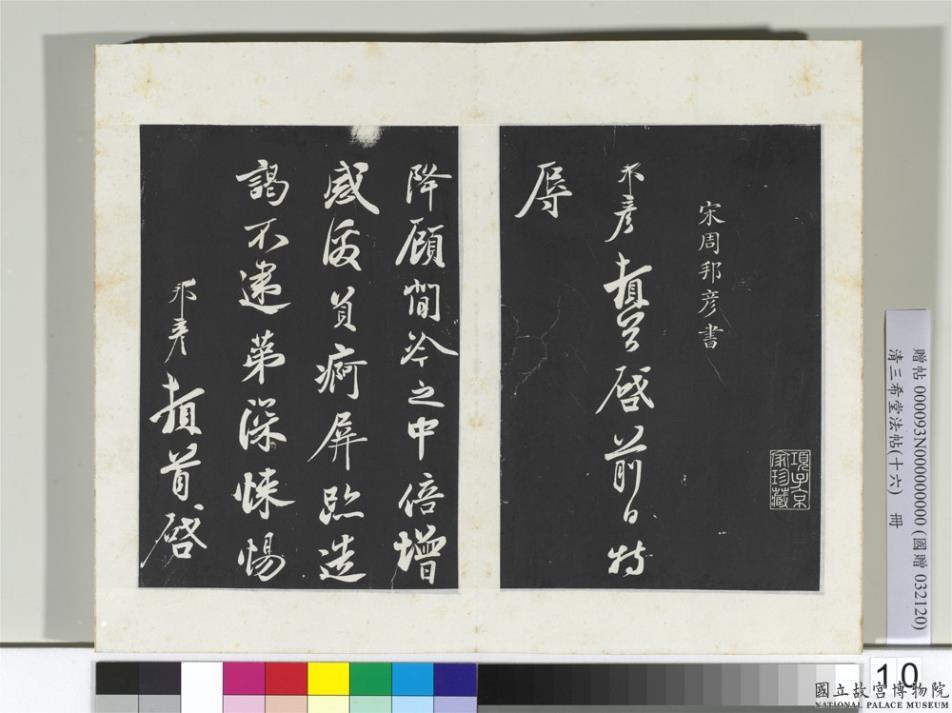 宋周邦彥書
邦彥頓首啓前日特
辱
降顧閒冷之中倍增
感激負痾屏跡造
謁不逮第深悚惕
邦彥頓首啓
項子京
家珍藏
贈帖 000093N000000000 (國贈 032120)
清三希堂法帖(十六) 冊
10
國立故宮博物院
NATIONAL PALACE MUSEUM